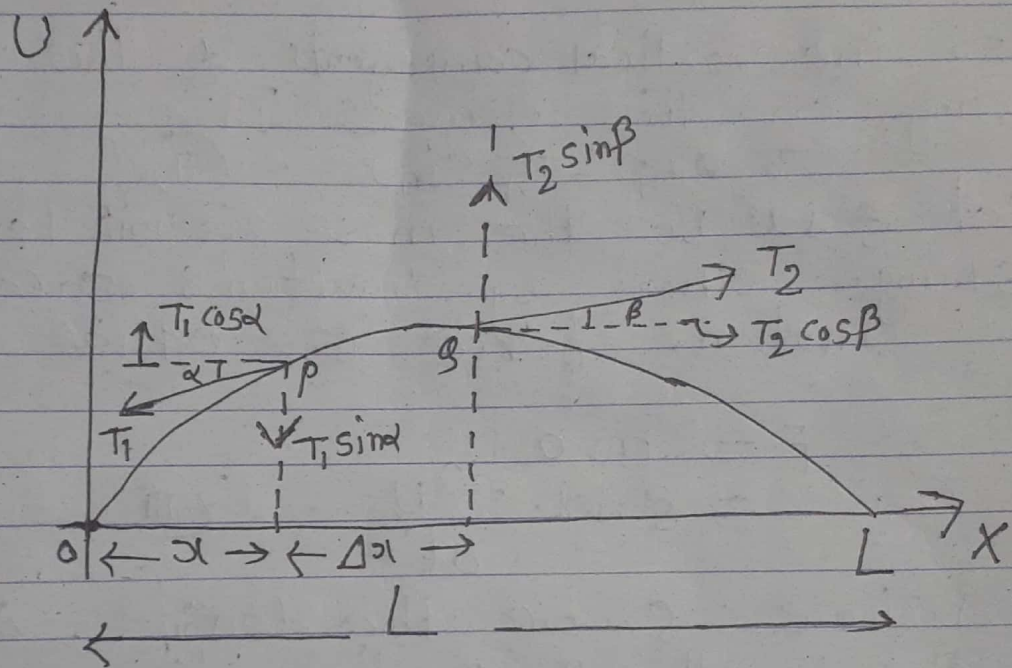 U
T₂ sinβ
T₂
T₁ cosα
β
T₂ cosβ
α
P
Q
T₁
T₁ sinα
O
x
Δx
L
X
L